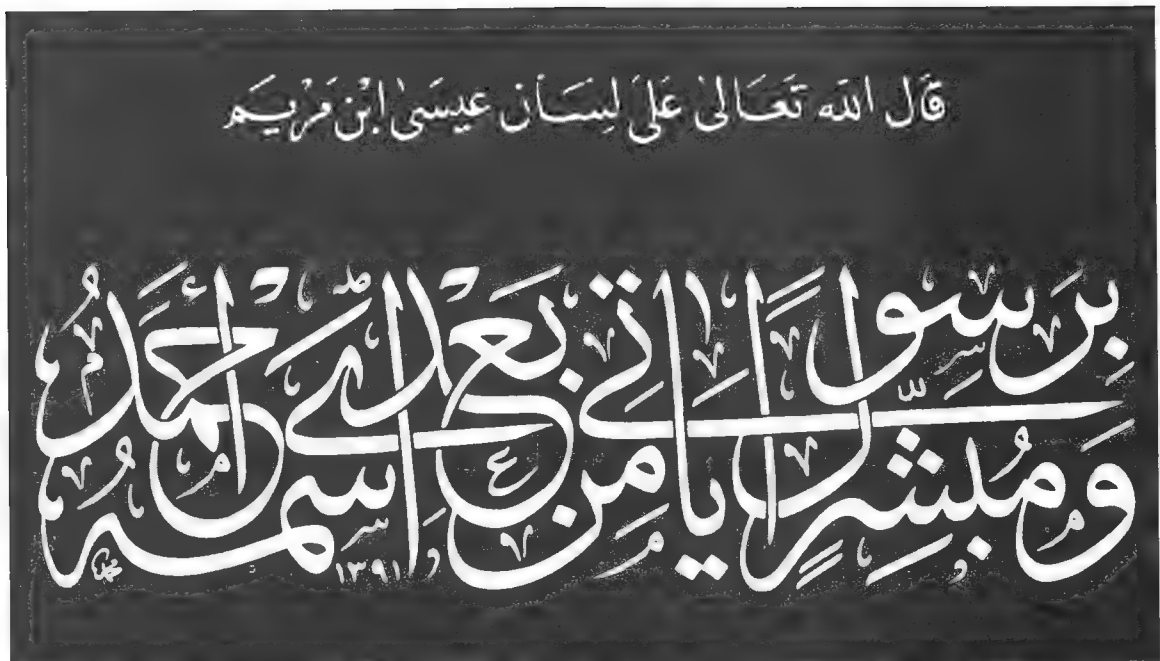 قَالَ اللّٰه تَعَالىٰ عَلىَ لِسَانِ عيسَىٰ ابْن مَرْيَم
وَمُبَشِّرًا بِرَسُولٍ يَأْتِي مِنْ بَعْدِي اسْمُهُ أَحْمَدُ
١٣٩١